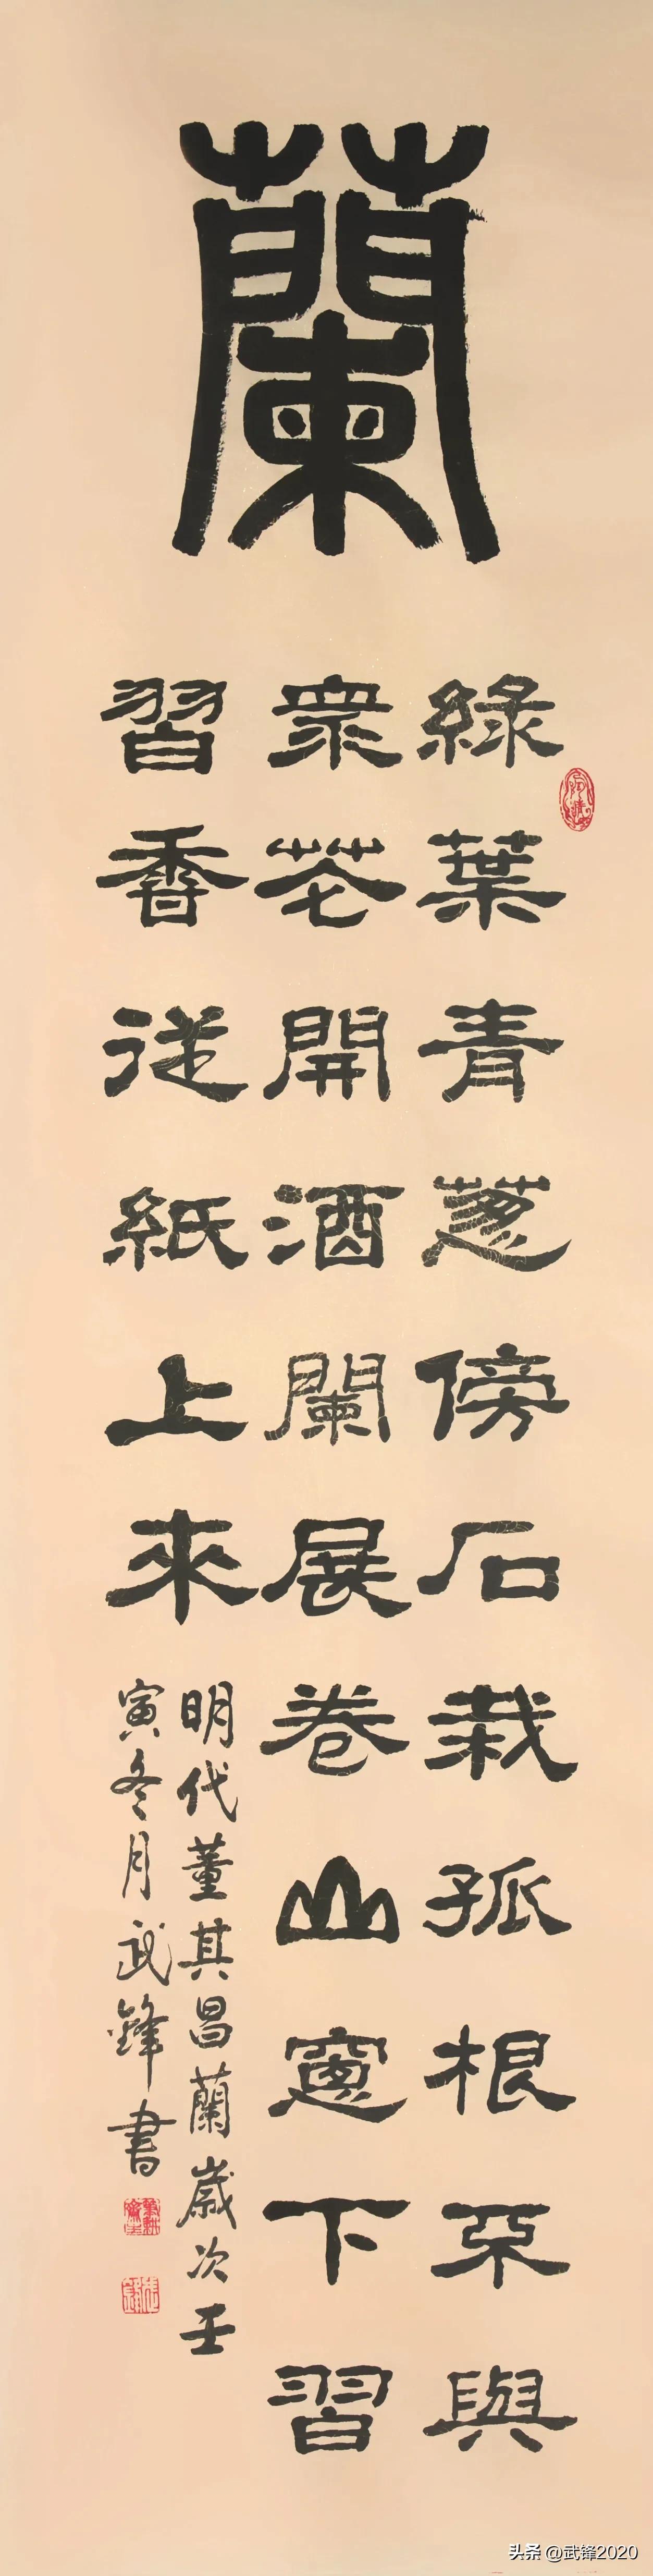 蘭
綠葉青蔥傍石栽孤根不與
眾花開酒闌展卷山窗下習
習香從紙上來
明代董其昌蘭歲次壬
寅冬月武鋒書
头条 @武锋2020